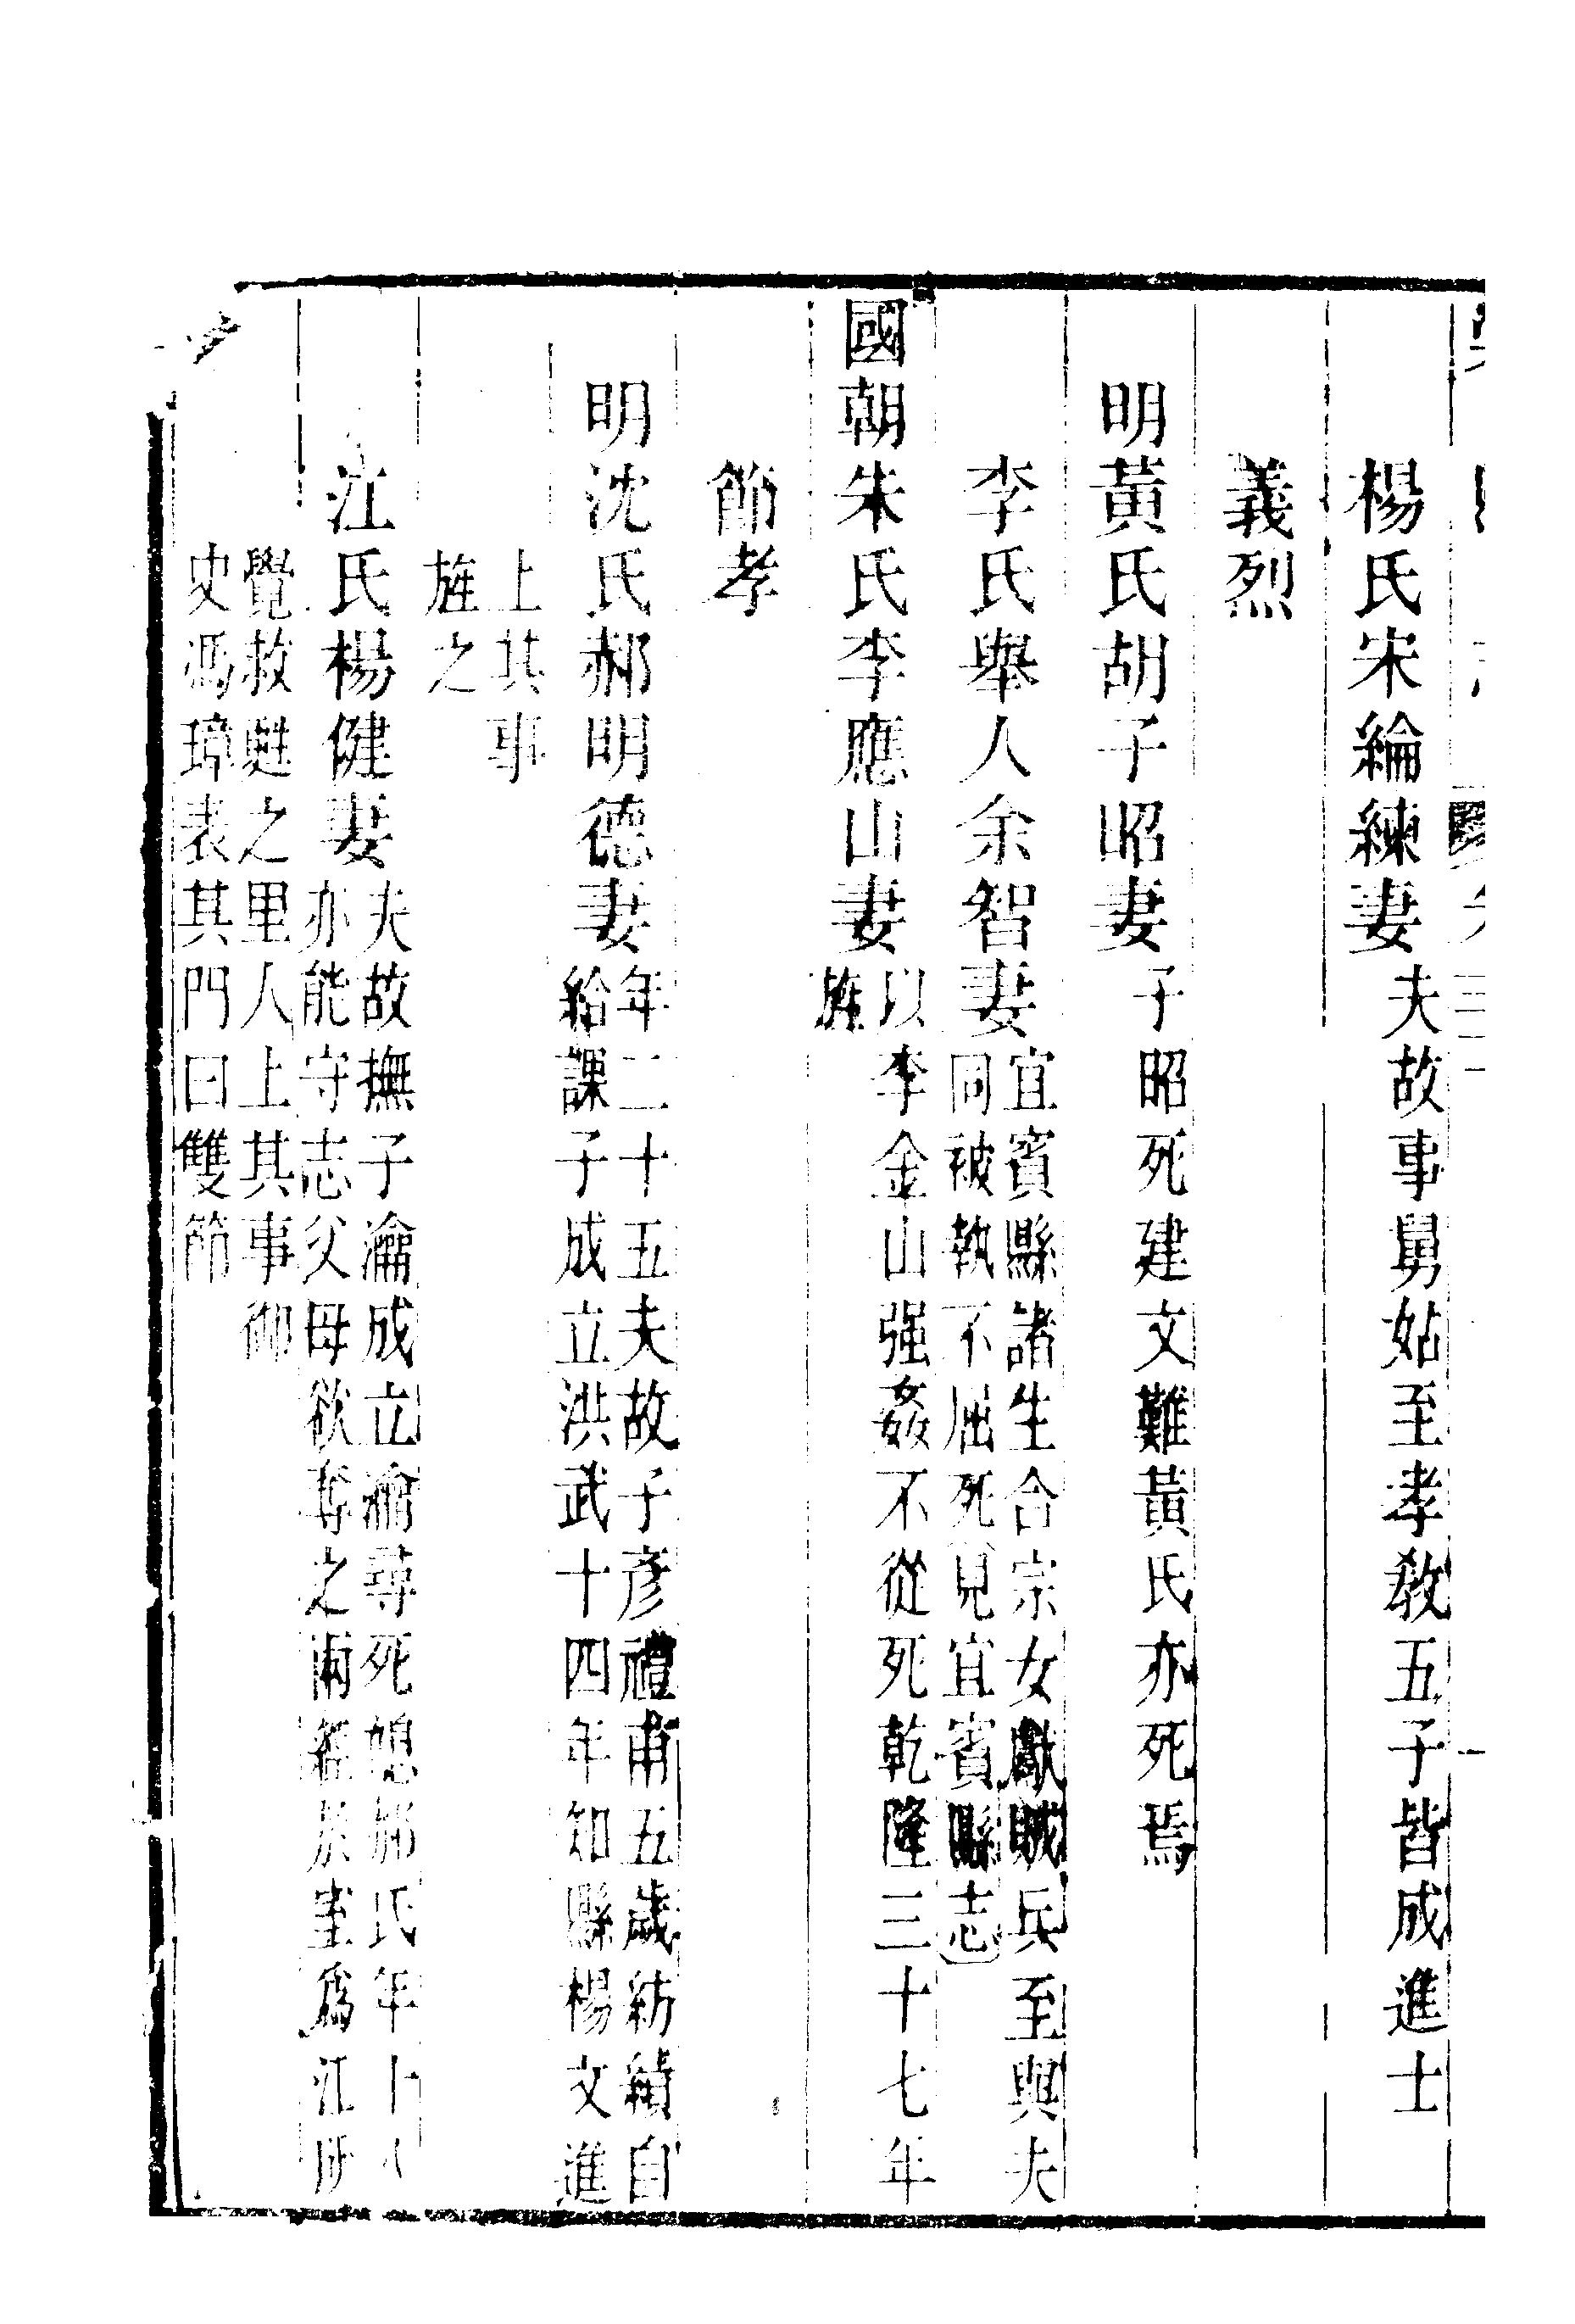 楊氏宋綸練妻夫故事舅姑至孝教五子皆成進士
義烈
明黃氏胡子昭妻子昭死建文難黃氏亦死焉
李氏舉人余智妻宜賓縣諸生合宗女獻賊兵至與夫
同被執不屈死見宜賓縣志
國朝朱氏李應山妻以李金山强姦不從死乾隆三十七年
旌
節孝
明沈氏郝明德妻年二十五夫故子彥禮甫五歲紡績自
給課子成立洪武十四年知縣楊文進
上其事
旌之
江氏楊健妻夫故撫子瀹成立瀹尋死媳郝氏年十八
亦能守志父母欲奪之兩經於室爲江所
覺救甦之里人上其事御
史馮璋表其門曰雙節